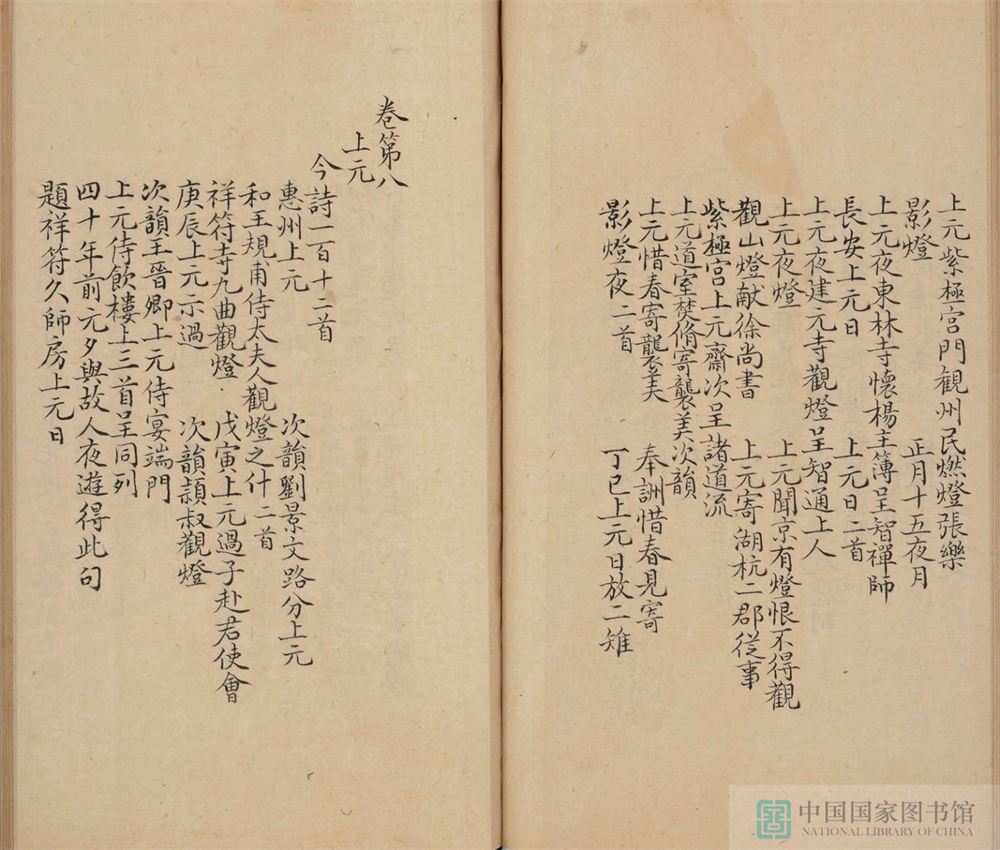 上元紫極宮門観州民燃燈張樂
影燈　正月十五夜月
上元夜東林寺懷楊主簿呈智禪師
長安上元日　上元日二首
上元夜建元寺觀燈呈智通上人
上元夜燈　上元聞京有燈恨不得觀
觀山燈献徐尚書　上元寄湖杭二郡從事
紫極宮上元齋次呈諸道流
上元道室焚脩寄襲美次韻
上元惜春寄襲美　奉詶惜春見寄
影燈夜二首　丁巳上元日放二雉
卷第八
上元
今詩一百十二首
惠州上元　次韻劉景文路分上元
和王規甫侍太夫人觀燈之什二首
祥符寺九曲觀燈　戊寅上元過子赴君使會
庚辰上元示過　次韻頴叔觀燈
次韻王晉卿上元侍宴端門
上元侍飲樓上三首呈同列
四十年前元夕與故人夜遊得此句
題祥符久師房上元日
中国国家图书馆
NATIONAL LIBRARY OF CHINA